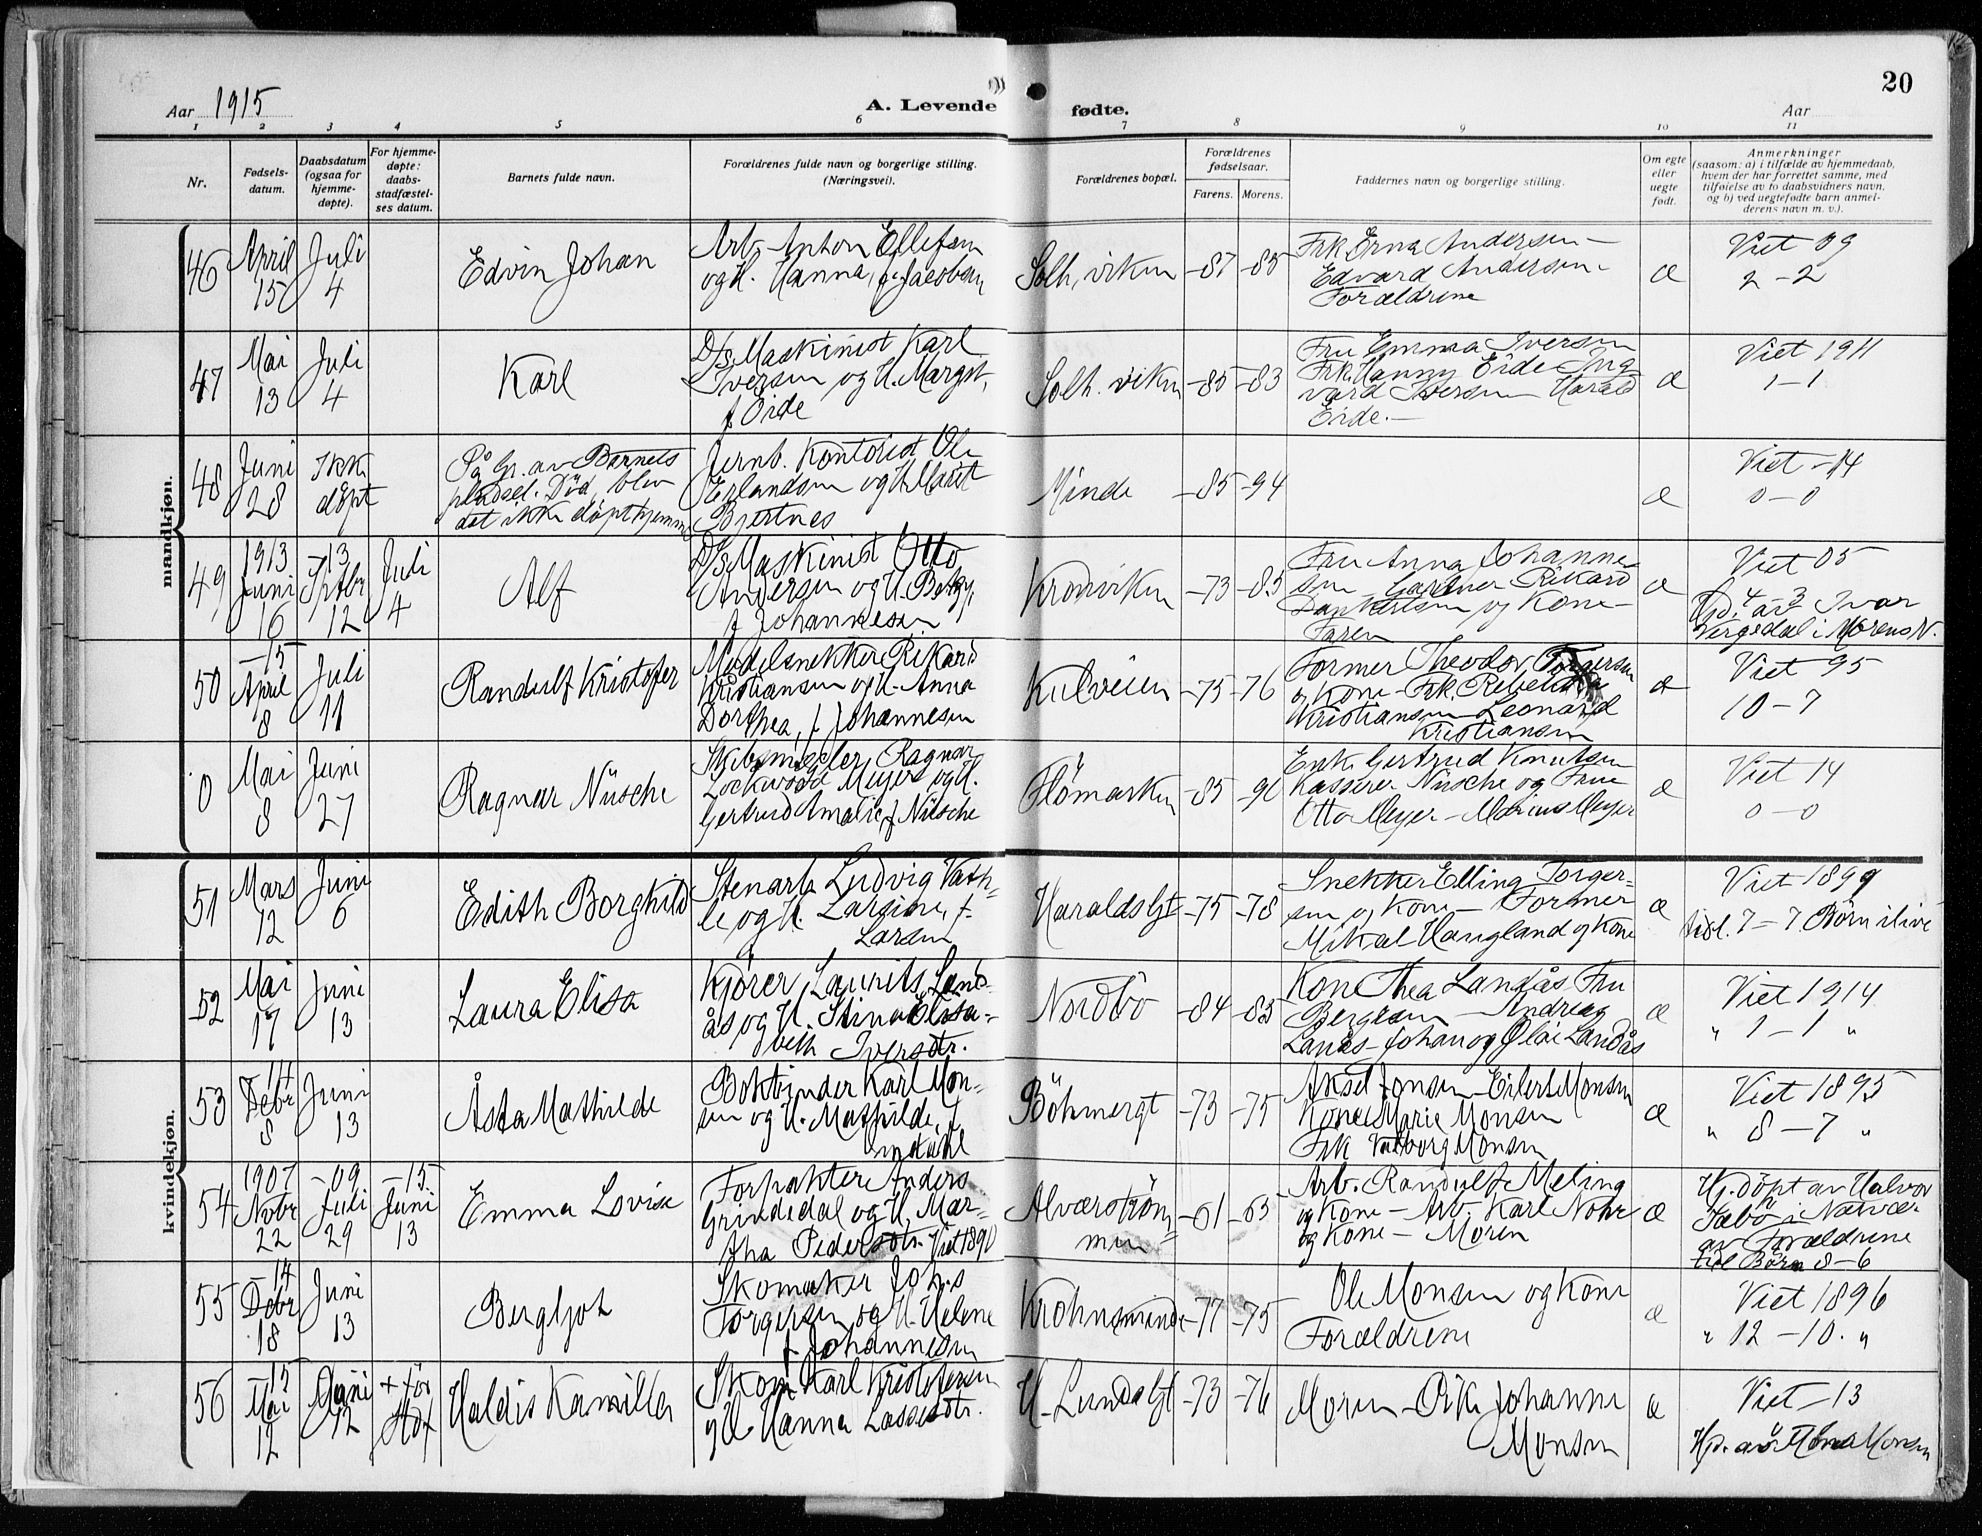 20
Aar 1915
A. Levende fødte.
Aar
1 2 3 4 5 6 7 8 9 10 11
Nr.
Fødsels-
datum.
Daabsdatum
(ogsaa for
hjemme-
døpte).
For hjemme-
døpte:
daabs-
stadfæstel-
ses datum.
Barnets fulde navn.
Forældrenes fulde navn og borgerlige stilling.
(Næringsvei).
Forældrenes bopæl.
Forældrenes
fødselsaar.
Farens. Morens.
Faddernes navn og borgerlige stilling.
Om egte
eller
uegte
født.
Anmerkninger
(saasom: a) i tilfælde av hjemmedaab,
hvem der har forrettet samme, med
tilføielse av to daabsvidners navn,
og b) ved uegtefødte barn anmel-
derens navn m. v.).
mandkjøn.
46
April
15
Juli
4
Edvin Johan
Arb. Anton Ellefsen
og H. Hanna, f. Jacobsen
Solh. viken
-87 -85
Frk. Erna Andersen -
Edvard Andersen -
Forældrene
æ
Viet 09
2 - 2
47
Mai
13
Juli
4
Karl
D/s Maskinist Karl
Iversen og H. Margit,
f Eide
Solh. viken
-85 -83
Fru Emma Iversen
Frk. Hanny Eide Ing
vard Iversen Harald
Eide. -
æ
Viet 1911
1 - 1
48
Juni
28
Ikke
døpt
På Gr. av Barnets
pludsel. Död, blev
det ikke döpt hjemme
Jernb. Kontorist Ole
Erlandsen og H. Marit
Bjertnes
Minde
-85 -94
æ
Viet -14
0 - 0
49
1913
Juni
16
-13
Septbr
12
Juli
4
Alf
D/s Maskinist Otto
Andersen og H.
f Johannesen
Kronviken
-73 -85
Fru Anna Johanne-
sen - Gartner Rikard
Dankertsen og Kone -
Faren
æ
Viet 05
4 - 3
Ivar
i Morens N.
50
-15
April
8
Juli
11
Randulf Kristofer
Modelsnekker Rikard
Kristiansen og H. Anna
Dorthea, f Johannesen
Kulveien
-75 -76
Former Theodor Torgersen
og Kone - Frk. Rebekka
Kristiansen Leonard
Kristiansen
æ
Viet 95
10 - 7
0
Mai
8
Juni
27
Ragnar Nüsche
Skibsmegler Ragnar
Lockwood Meyer og H.
Gertrud Amalie f Nüsche
Flömarken
-85 -90
Enk. Gertrud Knutsen
Kasserer Nüsche og Frue
Otto Meyer - Marius Meyer
æ
Viet 14
0 - 0
kvindekjøn.
51
Mars
12
Juni
6
Edith Borghild
Stenarb. Ludvig Vath-
le og H. Larsine, f.
Larsen
Haraldsgt
-75 -78
Snekker Elling Torger=
sen og Kone - Former
Mikal Haugland og Kone
æ
Viet 1899
tidl. 7 - 7 Børn ilive
52
Mai
17
Juni
13
Laura Elisa
Kjører Laurits Land-
ås og H. Stina Elisa-
beth Iversdtr.
Nordbö
-84 -85
Kone Thea Landås Fru
Bergesen - Andreas
Landås - Johan og Olai Landås
æ
Viet 1914
" 1 - 1 "
53
-14
Debr
8
Juni
13
Åsta Mathilde
Bokbinder Karl Mon-
sen og H. Mathilde, f
Böhmergt
-73 -75
Aksel Jonsen - Eilert Monsen
Kone Marie Monsen
Frk Valborg Monsen
æ
Viet 1895
" 8 - 7 "
54
1907
Novbr
22
-09
Juli
29
-15
Juni
13
Emma Lovise
Forpakter Anders
Grindedal og H. Mar-
tha Pedersdtr. Viet 1890
Alværströmmen
-61 -65
Arb. Randulf Meling
og Kone - Arb. Karl Nohr
og Kone - Moren
æ
Hj. döpt av Halvor
Sæbö i Nærvær
av Forældrene
tidl Børn 8 - 6
55
-14
Debr
18
Juni
13
Bergljot
Skomaker Johs
Torgersen og H. Helene
f Johannesen
Krohnsminde
-77 -75
Ole Monsen og Kone
Forældrene
æ
Viet 1896
" 12 - 10. "
56
-15
Mai
12
Juni
12
Haldis Kamilla
Skom Karl Kristofersen
og H. Hanna Lassesdtr.
H. Lundsgt
-73 -76
Moren - Johanne
Monsen
æ
Viet -13
Monsen